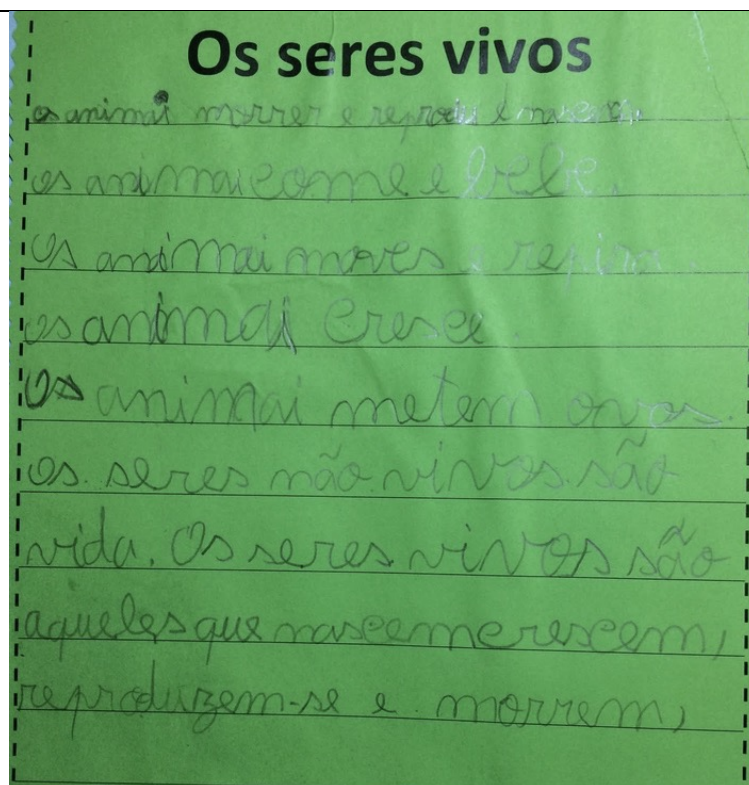 Os seres vivos
os animai morrer e reprodu e nascem
os animai come e bebe.
Os animai moves e repira.
os animai cresce.
Os animai metem ovos.
os seres não vivos são
vida. Os seres vivos são
aqueles que nascem crescem,
reproduzem-se e morrem,